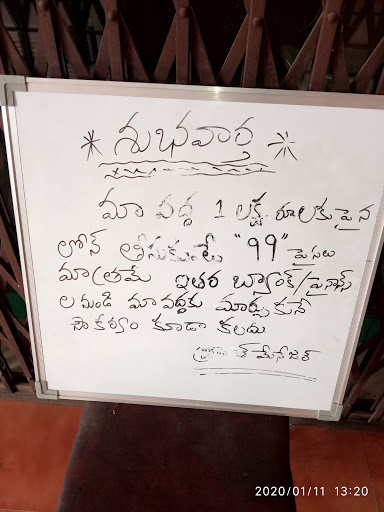 * శుభవార్త *
మా వద్ద 1 లక్ష రూలకు పైన
లోన్ తీసుకుంటే "99" పైసలు
మాత్రమే ఇతర బ్యాంక్/ఫైనాన్స్
ల నుండి మా వద్దకు మార్చుకునే
సౌకర్యం కూడా కలదు
మేనేజర్
2020/01/11 13:20